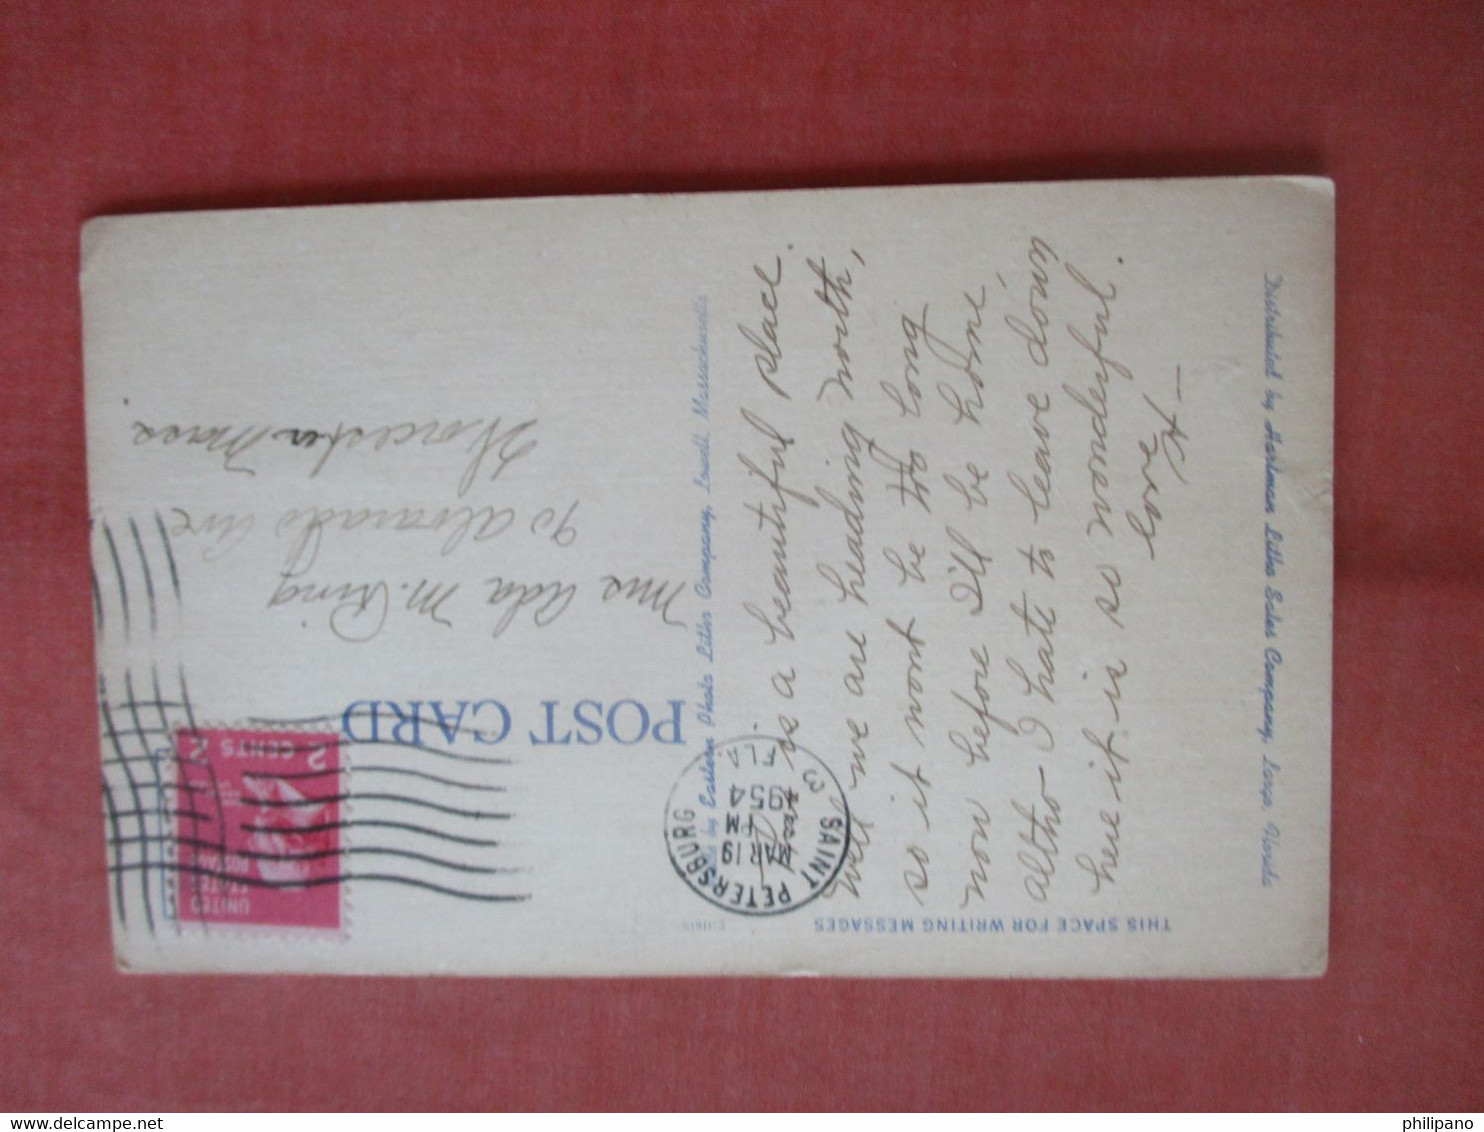 THIS SPACE FOR WRITING MESSAGES
is a beautiful place.
Well we are heading north,
so it wont be to long
now before I'll be home,
altho- I hate to leave down
here it is so wonderful.
Love,
Distributed by Hartman Litho Sales Company, Largo, Florida
by Eastern Photo Litho Company, Lowell, Massachusetts
POST CARD
SAINT PETERSBURG
FLA.
3
MAR 19
PM
1954
UNITED
STATES
POSTAGE
2 CENTS 2
Mrs Ada M. King
90 Alvarado Ave
Worcester Mass
philipano
delcampe.net